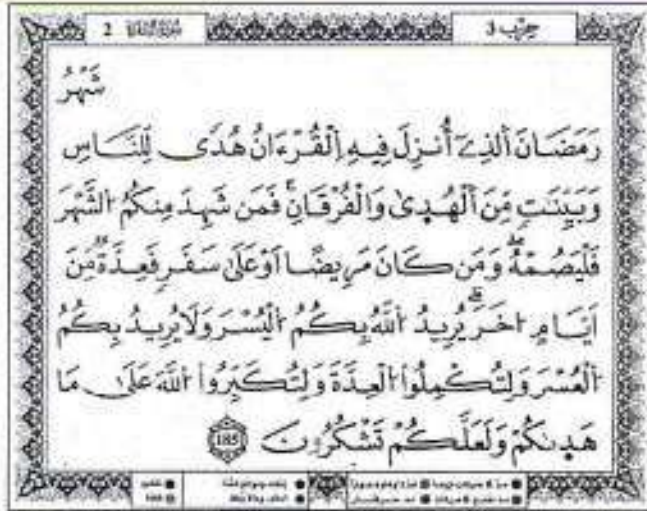 2 سورة البقرة حزب 3
شَهْرُ
رَمَضَانَ اَلذِےٓ أُنزِلَ فِيهِ اِلْقُرْءَانُ هُدىً لِّلنَّاسِ
وَبَيِّنَٰتٖ مِّنَ اَلْهُد۪ىٰ وَالْفُرْقَانِۖ فَمَن شَهِدَ مِنكُمُ اُلشَّهْرَ
فَلْيَصُمْهُۖ وَمَن كَانَ مَرِيضًا اَوْ عَلَىٰ سَفَرٖ فَعِدَّةٞ مِّنَ
اَيَّامٍ اُخَرَۖ يُرِيدُ اُللَّهُ بِكُمُ اُلْيُسْرَ وَلَا يُرِيدُ بِكُمُ
اُلْعُسْرَ وَلِتُكْمِلُواْ اُلْعِدَّةَ وَلِتُكَبِّرُواْ اُللَّهَ عَلَىٰ مَا
هَد۪ىٰكُمْ وَلَعَلَّكُمْ تَشْكُرُونَ 185